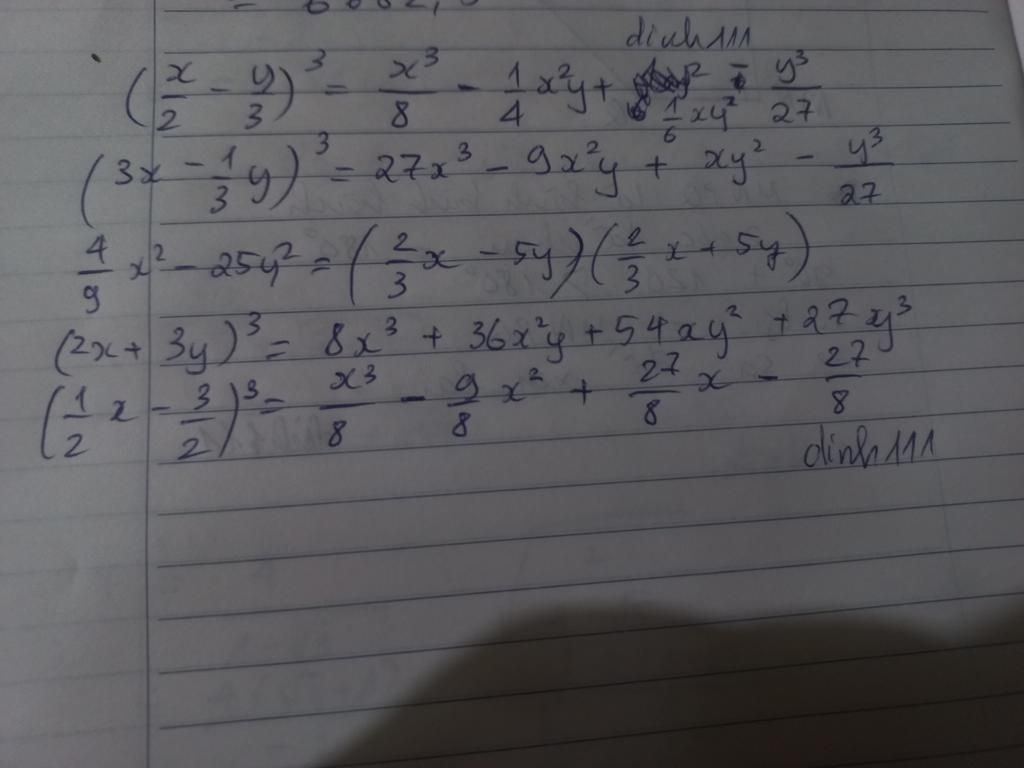 dinh111
(x/2 - y/3)³ = x³/8 - 1/4 x²y + 1/6 xy² - y³/27
(3x - 1/3 y)³ = 27x³ - 9x²y + xy² - y³/27
4/9 x² - 25y² = (2/3 x - 5y)(2/3 x + 5y)
(2x + 3y)³ = 8x³ + 36x²y + 54xy² + 27xy³
(1/2 x - 3/2)³ = x³/8 - 9/8 x² + 27/8 x - 27/8
dinh111